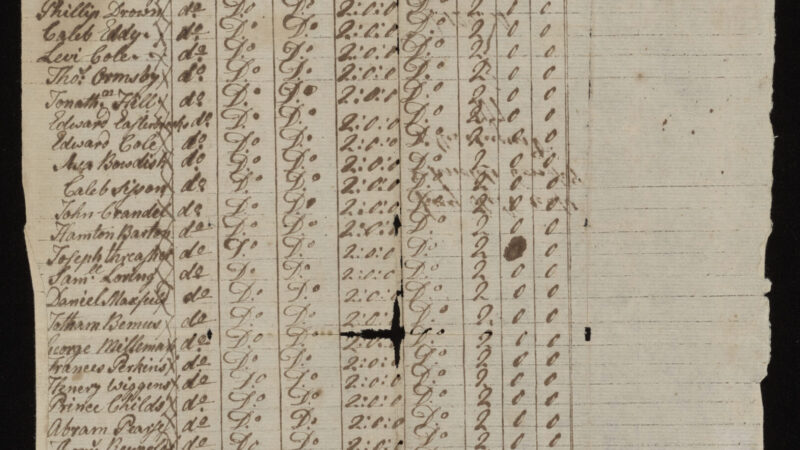 Phillip Drown do Do Do 2:0:0 Do 2 0 0
Caleb Eddy do Do Do 2:0:0 Do 2 0 0
Levi Cole do Do Do 2:0:0 Do 2 0 0
Thos Ormsby do Do Do 2:0:0 Do 2 0 0
Jonathan Hill do Do Do 2:0:0 Do 2 0 0
Edward Easterbrooks do Do Do 2:0:0 Do 2 0 0
Edward Cole do Do Do 2:0:0 Do 2 0 0
Asa Bowdish do Do Do 2:0:0 Do 2 0 0
Caleb do Do Do 2:0:0 Do 2 0 0
John Crandel do Do Do 2:0:0 Do 2 0 0
Hamton Barton do Do Do 2:0:0 Do 2 0 0
Joseph threasher do Do Do 2:0:0 Do 2 0
Samll Loring do Do Do 2:0:0 Do 2 0 0
Daniel Maxfield do Do Do 2:0:0 Do 2 0 0
Jotham Bemus do Do Do 2:0:0 Do 2 0 0
George Milleman do Do Do 2:0:0 Do 2 0 0
Frances Perkins do Do Do 2:0:0 Do 2 0 0
Henery Wiggens do Do Do 2:0:0 Do 2 0 0
Prince Childs do Do Do 2:0:0 Do 2 0 0
Abram Pearse do Do Do 2:0:0 Do 2 0 0
do Do Do 2:0:0 Do 2 0 0